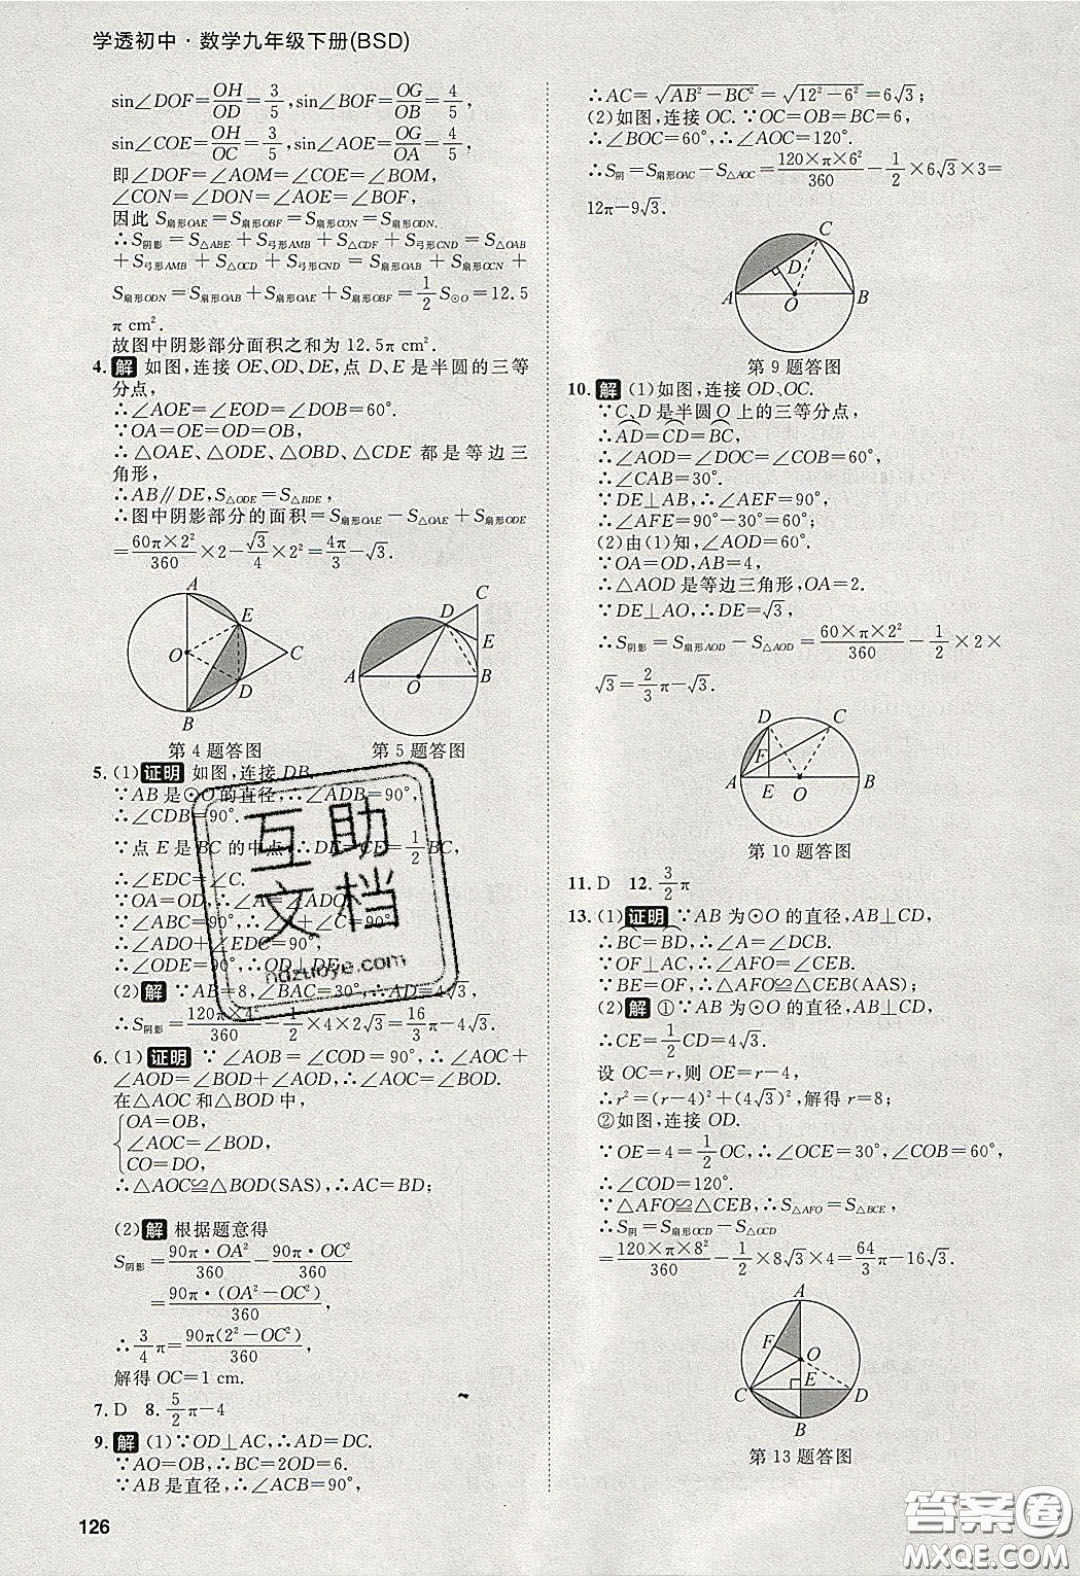 学透初中·数学九年级下册(BSD)
sin∠DOF=OH/OD=3/5,sin∠BOF=OG/OB=4/5,
sin∠COE=OH/OC=3/5,sin∠AOE=OG/OA=4/5,
即∠DOF=∠AOM=∠COE=∠BOM,
∠CON=∠DON=∠AOE=∠BOF,
因此 S扇形OAE=S扇形OBF=S扇形CON=S扇形ODN.
∴S阴影=S△ABE+S弓形AMB+S△CDF+S弓形CND=S△OAB
+S弓形AMB+S△OCD+S弓形CND=S扇形OAB+S扇形OCN+
S扇形ODN=S扇形OAB+S扇形OAE+S扇形OBF=1/2S⊙O=12.5
π cm².
故图中阴影部分面积之和为 12.5π cm².
4. 解 如图,连接 OE、OD、DE,点 D、E 是半圆的三等
分点,
∴∠AOE=∠EOD=∠DOB=60°.
∵OA=OE=OD=OB,
∴△OAE、△ODE、△OBD、△CDE 都是等边三
角形,
∴AB∥DE,S△ODE=S△BDE,
∴图中阴影部分的面积=S扇形OAE-S△OAE+S扇形ODE
=60π×2²/360×2-√3/4×2²=4π/3-√3.
A
E
O
C
D
B
第 4 题答图
C
D
E
A
O
B
第 5 题答图
5. (1) 证明 如图,连接 DB.
∵AB 是⊙O 的直径,∴∠ADB=90°,
∴∠CDB=90°.
∵点 E 是 BC 的中点,∴DE=CE=1/2BC,
∴∠EDC=∠C.
∵OA=OD,∴∠A=∠ADO.
∵∠ABC=90°,∴∠A+∠C=90°,
∴∠ADO+∠EDC=90°,
∴∠ODE=90°,∴OD⊥DE;
(2) 解 ∵AB=8,∠BAC=30°,∴AD=4√3,
∴S阴影=120π×4²/360-1/2×4×2√3=16/3π-4√3.
6. (1) 证明 ∵∠AOB=∠COD=90°,∴∠AOC+
∠AOD=∠BOD+∠AOD,∴∠AOC=∠BOD.
在△AOC 和△BOD 中,
OA=OB,
∠AOC=∠BOD,
CO=DO,
∴△AOC≌△BOD(SAS),∴AC=BD;
(2) 解 根据题意得
S阴影=90π·OA²/360-90π·OC²/360
=90π·(OA²-OC²)/360,
∴3/4π=90π(2²-OC²)/360,
解得 OC=1 cm.
7. D 8. 5/2π-4
9. 解 (1)∵OD⊥AC,∴AD=DC.
∵AO=OB,∴BC=2OD=6.
∵AB 是直径,∴∠ACB=90°,
126
∴AC=√(AB²-BC²)=√(12²-6²)=6√3;
(2)如图,连接 OC.∵OC=OB=BC=6,
∴∠BOC=60°,∴∠AOC=120°.
∴S阴=S扇形OAC-S△AOC=120×π×6²/360-1/2×6√3×3=
12π-9√3.
C
D
A
O
B
第 9 题答图
10. 解 (1)如图,连接 OD、OC.
∵C、D 是半圆 O 上的三等分点,
∴AD=CD=BC,
∴∠AOD=∠DOC=∠COB=60°,
∴∠CAB=30°.
∵DE⊥AB,∴∠AEF=90°,
∴∠AFE=90°-30°=60°;
(2)由(1)知,∠AOD=60°.
∵OA=OD,AB=4,
∴△AOD 是等边三角形,OA=2.
∵DE⊥AO,∴DE=√3,
∴S阴影=S扇形AOD-S△AOD=60×π×2²/360-1/2×2×
√3=2/3π-√3.
D
C
F
A
E
O
B
第 10 题答图
11. D 12. 3/2π
13. (1) 证明 ∵AB 为⊙O 的直径,AB⊥CD,
∴BC=BD,∴∠A=∠DCB.
∵OF⊥AC,∴∠AFO=∠CEB.
∵BE=OF,∴△AFO≌△CEB(AAS);
(2) 解 ①∵AB 为⊙O 的直径,AB⊥CD,
∴CE=1/2CD=4√3.
设 OC=r,则 OE=r-4,
∴r²=(r-4)²+(4√3)²,解得 r=8;
②如图,连接 OD.
∵OE=4=1/2OC,∴∠OCE=30°,∠COB=60°,
∴∠COD=120°.
∵△AFO≌△CEB,∴S△AFO=S△BCE,
∴S阴=S扇形OCD-S△OCD
=120×π×8²/360-1/2×8√3×4=64/3π-16√3.
A
F
O
E
C
D
B
第 13 题答图
互助
文档
hdzuoye.com
答案圈
MXQE.COM